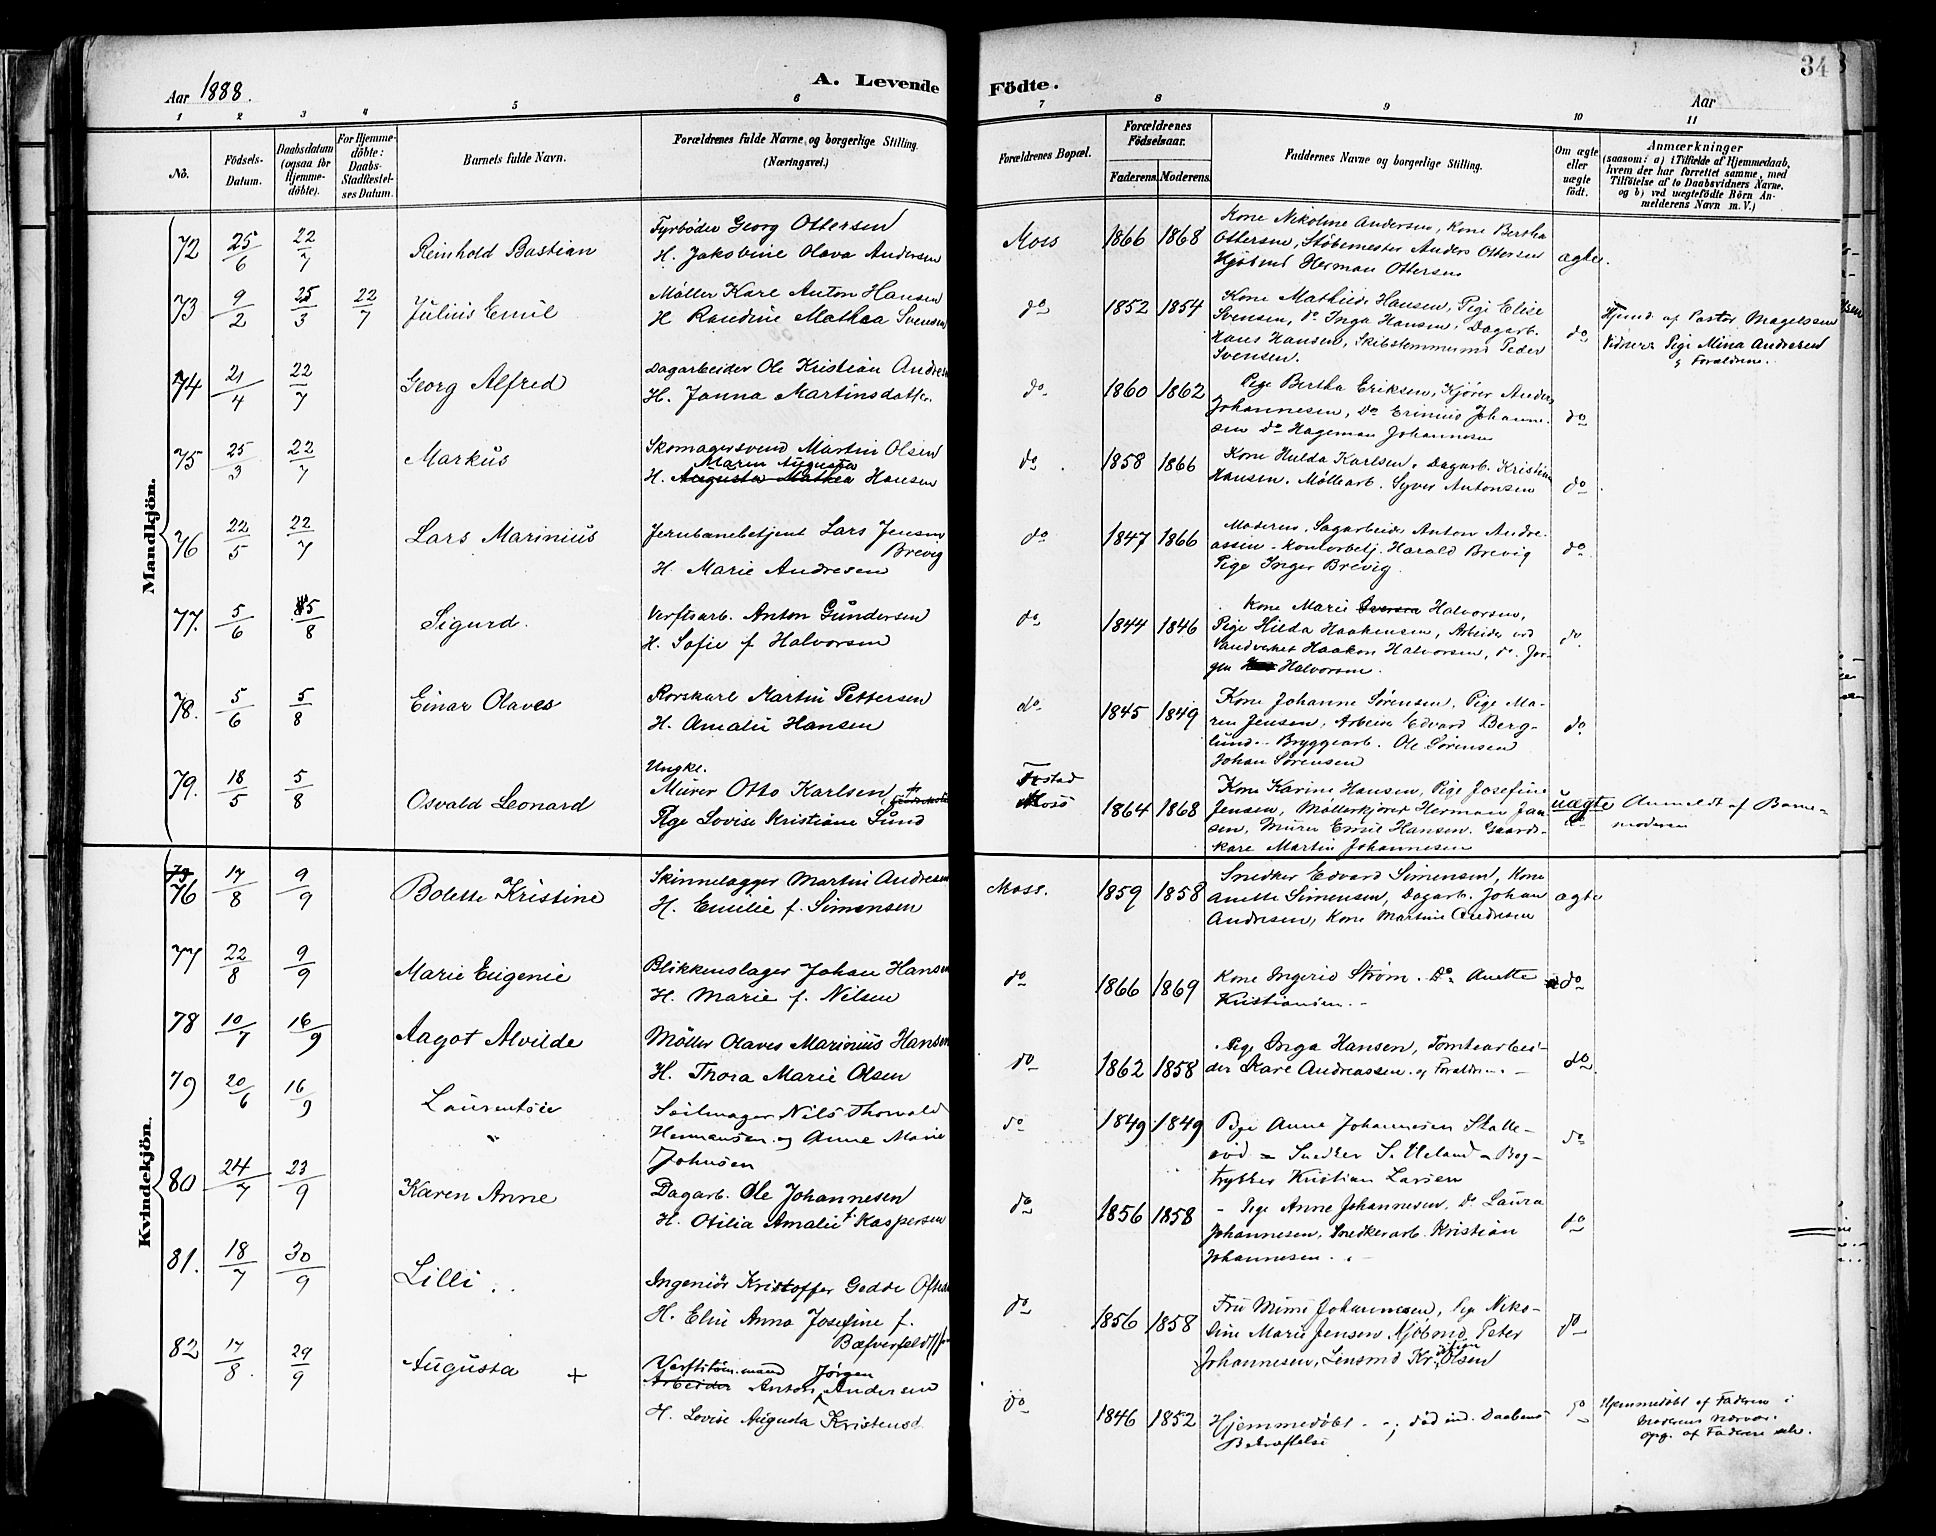 Aar 1888.
A. Levende
Födte.
34
Aar
1 2 3 4 5 6 7 8 9 10 11
No.
Födsels-
Datum.
Daabsdatum
(ogsaa for
Hjemme-
döbte).
For Hjemme-
döbte:
Daabs-
Stadfæstel-
ses Datum.
Barnets fulde Navn.
Forældrenes fulde Navne og borgerlige Stilling.
(Næringsvei.)
Forældrenes Bopæl.
Forældrenes
Födselsaar.
Faderens. Moderens.
Faddernes Navne og borgerlige Stilling.
Om ægte
eller
uægte
födt.
Anmærkninger
(saasom: a) i Tilfælde af Hjemmedaab,
hvem der har forrettet samme, med
Tilföielse af to Daabsvidners Navne.
og b) ved uægtefödte Börn An-
melderens Navn m. V.)
Mandkjön.
72 25/6 22/7 Reinhold Bastian
Fyrböder Georg Ottersen
H. Jakobine Olava Andersen
Moss 1866 1868
Kone Nikoline Andersen, Kone Bertha
Ottersen, Støbemester Anders Ottersen
Herman Ottersen
ægte.
73 9/2 25/3 22/7 Julius Emil
Møller Karl Anton Hansen
H Randine Mathea Svensen
do 1852 1854
Kone Mathilde Hansen, Pige Elise
Svensen, do Inga Hansen, Dagarb.
Hans Hansen, Peder
Svensen.
do
Hjemd. af Pastor Magelssen
Vidner: Pige Mina Andresen
& Forældrene.
74 21/4 22/7 Georg Alfred
Dagarbeider Ole Kristian Andresen
H. Janna Martinsdatter
do 1860 1862
Pige Bertha Eriksen, Kjører Anders
Johannesen, do Johanne-
sen do Hageman Johannesen
do
75 25/3 22/7 Markus
Skomagersvend Martin Olsen
Maren Augusta
H. Augusta Mathea Hansen
do 1858 1866
Kone Hulda Karlsen, Dagarb. Kristian
Hansen. Møllearb. Syver Antonsen
do
76 22/5 22/7 Lars Marinius
Jernbanebetjent Lars Jensen
Brevig
H. Marie Andresen
do 1847 1866
Moderen, Sagarbeider Anton Andre-
assen - Kontorbetj. Harald Brevig
Pige Inger Brevig.
do
77. 5/6 5/8 Sigurd.
Verftsarb. Anton Gundersen
H. Sofie f Halvorsen
do 1844 1846
Kone Marie Halvorsen,
Pige Hilda Haakensen, Arbeider ved
Vandverket Haakon Halvorsen, do. Jør-
gen Halvorsen.
do
78. 5/6 5/8 Einar Olaves
Rorskarl Martin Pettersen
H. Amalie Hansen
do 1845 1849
Kone Johanne Sørensen, Pige Ma-
ren Jensen, Arbeider Edvard Berg-
lund - Bryggearb. Ole Sørensen
Johan Sørensen
do
79. 18/5 5/8 Osvald Leonard
Ungkl.
Murer Otto Karlsen,
Pige Lovise Kristiane Lund
Moss 1864 1868
Kone Karine Hansen, Pige Josefine
Jensen, Møllerkjører Herman Jan-
sen, Murer Emil Hansen. Gaards-
kare Martin Johannesen
uægte
Anmeldt af Barne-
moderen
Kvindekjön.
75
76 17/8 9/9 Bolette Kristine
Martin Andresen
H. Emilie f. Simensen
Moss. 1859 1858
Snedker Edvard Simensen, Kone
Anette Simensen, Dagarb. Johan
Andresen, Kone Martine Andresen
ægte
77 22/8 9/9 Marie Eugenie
Blikkenslager Johan Hansen
H. Marie f. Nilsen
do 1866 1869
Kone Ingerid Strøm. Do Anette
Kristiansen. -
do
78 10/7 16/9 Aagot Alvilde
Møller Olaves Marinius Hansen
H. Thora Marie Olsen
do 1862 1858
Pige Inga Hansen, Tomtearbei-
der Kare Andreassen. og Forældrene. -
do
79 20/6 16/9
Seilmager Nils Thorvald
Hermansen og Anne Marie
Johnsen
do 1849 1849
Pige Anne Johannesen
Snedker - Bog-
trykker Kristian Larsen
do
80 24/7 23/9 Karen Anne
Dagarb. Ole Johannesen
H. Otilia Amalie f. Kaspersen
do 1856 1858
- Pige Anne Johannesen, Do Laura
Johannesen, Snedkerarb. Kristian
Johannesen.
do
81. 18/7 30/9 Lilli
Ingeniør Kristoffer Gedde
H. Elin Anna Josefine f.
do 1856 1858
Fru Mimi Johannesen, Pige Niko-
line Marie Jensen, Kjøbmd Peter
Johannesen, Lensmd Kristian Olsen
do
82 17/8 29/9 Augusta +
Verftstømmermand Jørgen
Arbeider Anton Andersen
H. Lovise Augusta Kristensd
do 1846 1852
Hjemmedøbt - ; død ind. Daabens
Bekræftelse
do
Hjemmedøbt af Faderen i
Moderens Nærvær.
Opg. af Faderen selv.